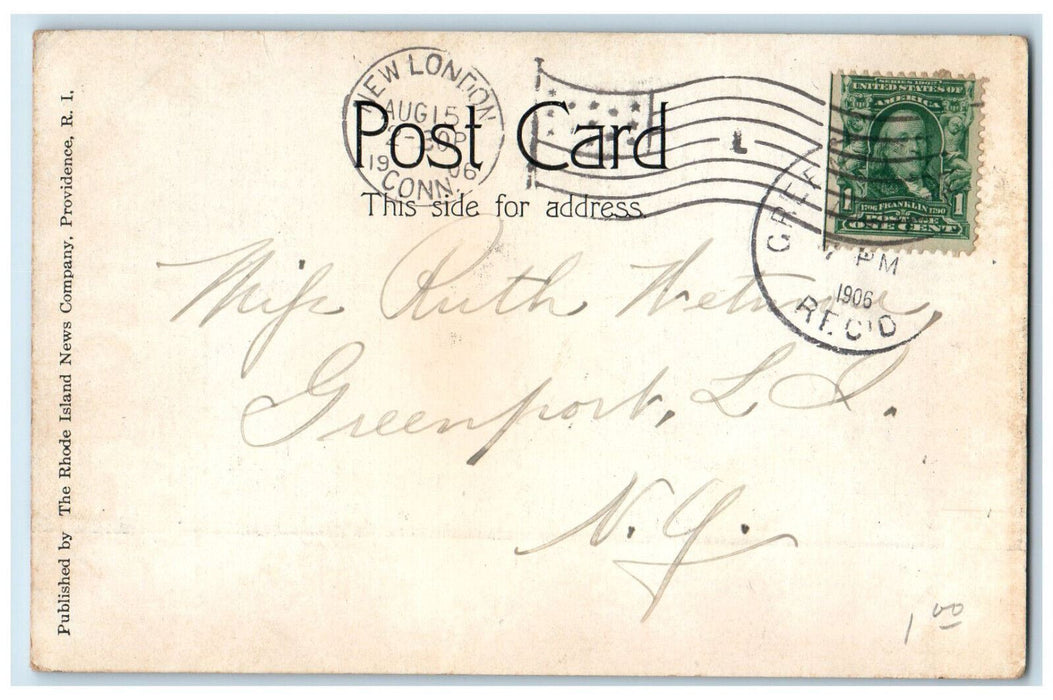 Published by The Rhode Island News Company, Providence, R. I.
NEW LONDON
AUG 15
2-30P
1906
CONN.
Post Card
This side for address.
SERIES 1902
UNITED STATES OF
AMERICA
1 1
1706 FRANKLIN 1790
POSTAGE
ONE CENT
L
PM
1906
REC'D
Miss Ruth
Greenport, L. I.
N. Y.
1 00